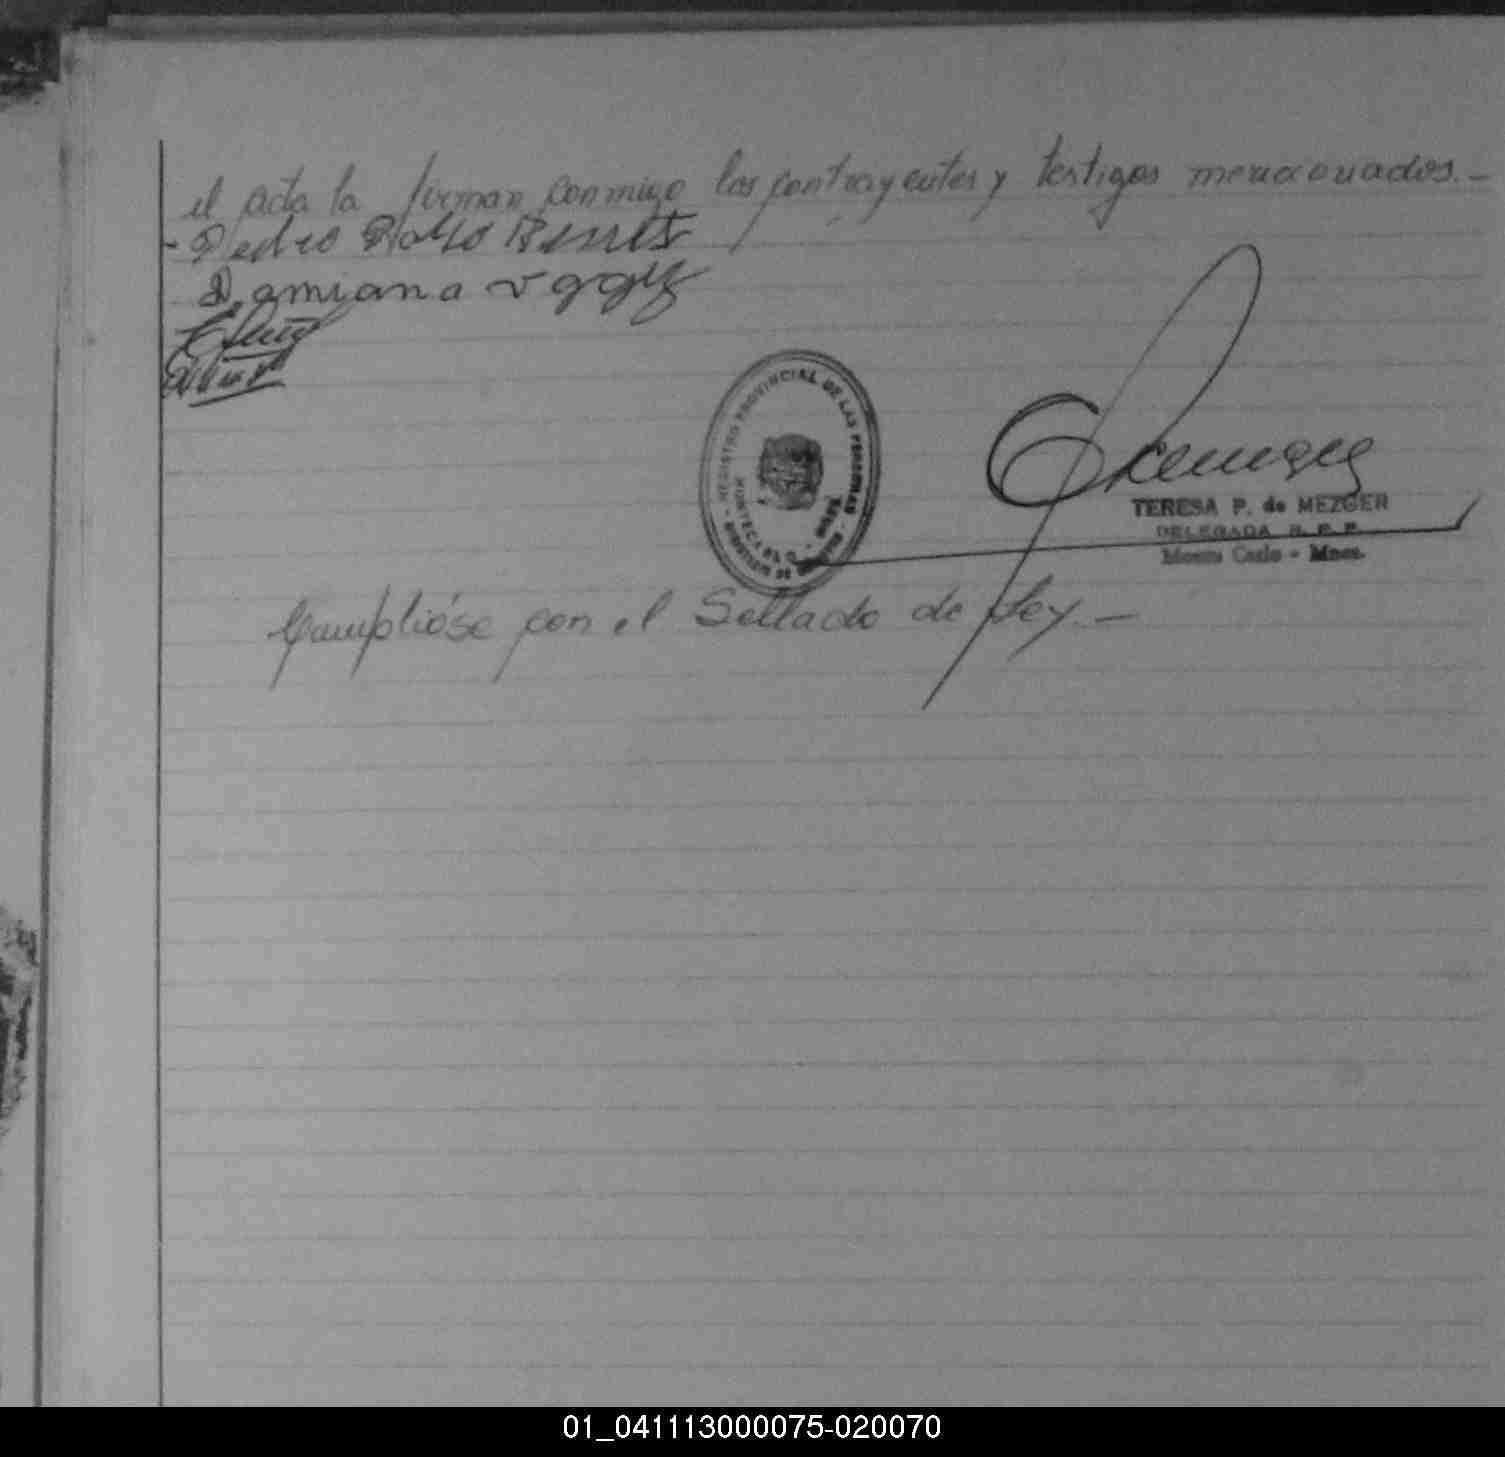 el acta la firman conmigo los contrayentes y testigos mencionados.-
- Pedro Pablo
Damiana
REGISTRO PROVINCIAL DE LAS PERSONAS
MONTECARLO
TERESA P. de MEZGER
DELEGADA R. P. P.
Monte Carlo - Mnes.
Cumplióse con el Sellado de Ley.-
01_041113000075-020070